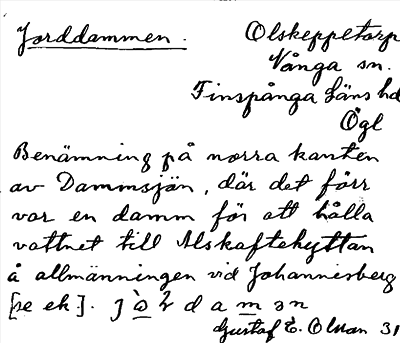 Jorddammen. Olskeppetorp
Vånga sn.
Finspånga läns hd
Ögl
Benämning på norra kanten
av Dammsjön, där det förr
var en damm för att hålla
vattnet till Alskaftehyttan
å allmänningen vid Johannisberg
[se ek.]. j d a m
Gustaf E. Olson 31